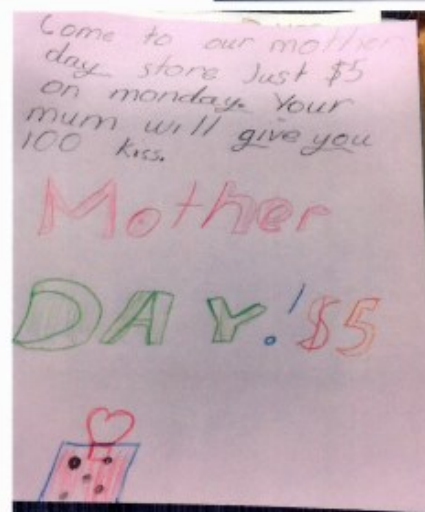 Come to our mother
day store Just $5
on monday. Your
mum will give you
100 kiss.
Mother
DAY! $5